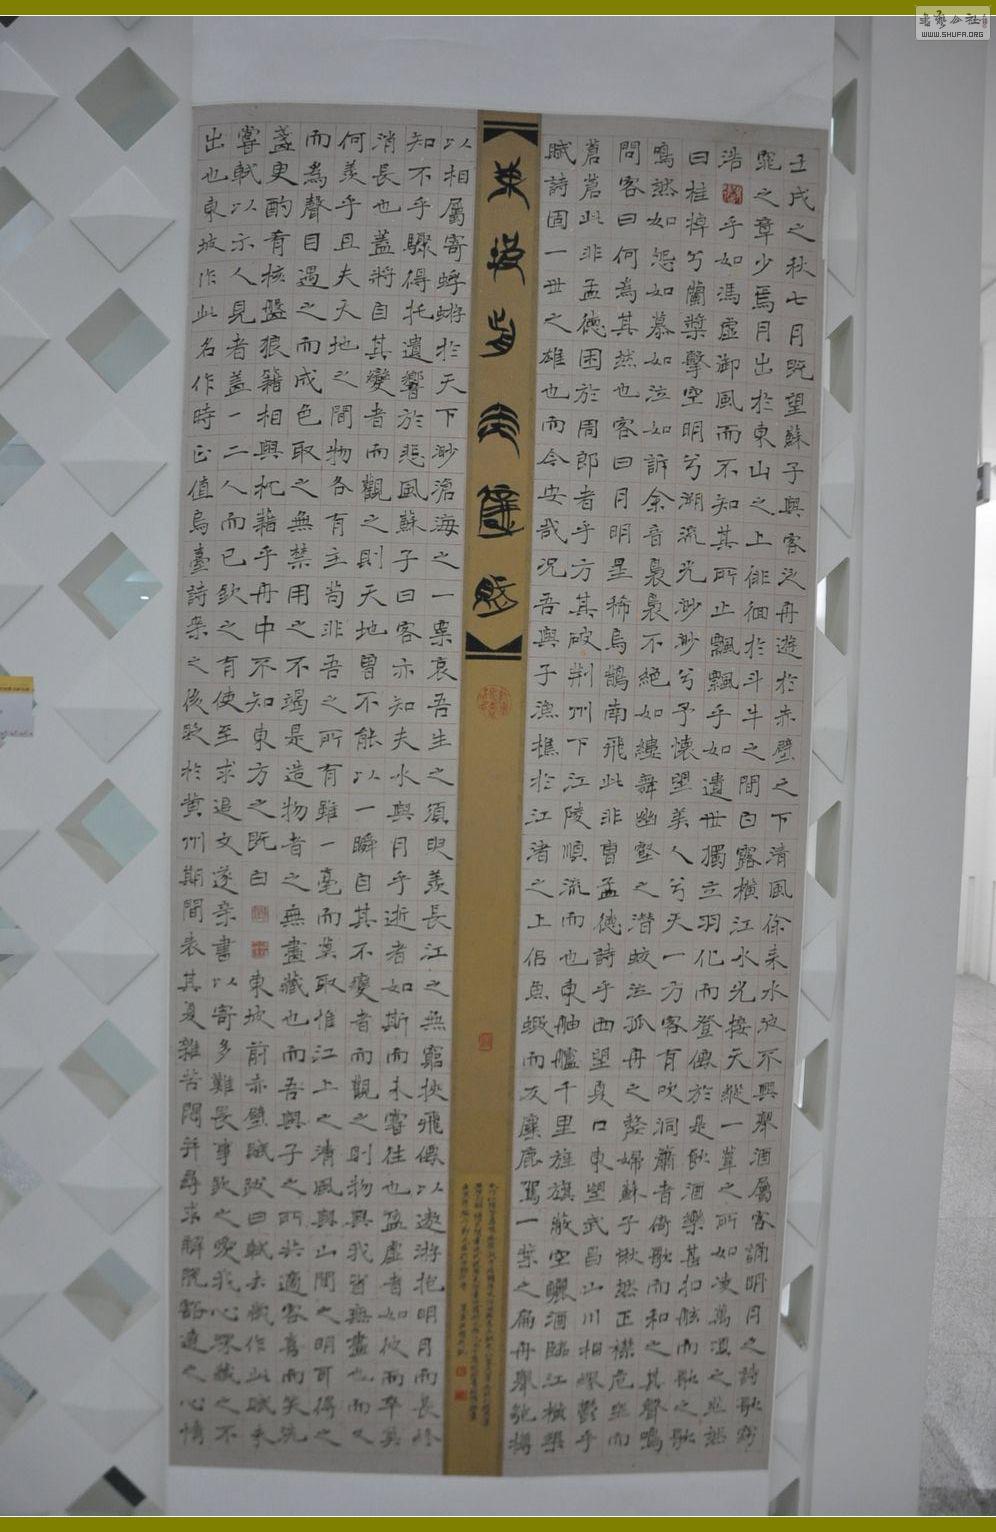 壬戌之秋七月既望蘇子與客泛舟遊於赤壁之下清風徐来水波不興舉酒屬客誦明月之詩歌窈
窕之章少焉月出於東山之上徘徊於斗牛之間白露橫江水光接天縱一葦之所如凌萬頃之茫然
浩乎如馮虛御風而不知其所止飄飄乎如遺世獨立羽化而登僊於是飲酒樂甚扣舷而歌之歌
曰桂棹兮蘭槳擊空明兮溯流光渺渺兮予懷望美人兮天一方客有吹洞簫者倚歌而和之其聲嗚
嗚然如怨如慕如泣如訴余音裊裊不絕如縷舞幽壑之潛蛟泣孤舟之嫠婦蘇子愀然正襟危坐而
問客曰何為其然也客曰月明星稀烏鵲南飛此非曹孟德詩乎西望夏口東望武昌山川相繆鬱乎
蒼蒼此非孟德困於周郎者乎方其破荆州下江陵順流而也東舳艫千里旌旗蔽空釃酒臨江橫槊
賦詩固一世之雄也而今安哉況吾與子漁樵於江渚之上侶魚蝦而友麋鹿駕一葉之扁舟舉匏樽
東坡前赤壁賦
以相屬寄蜉蝣於天下渺滄海之一粟哀吾生之須臾羨長江之無窮挾飛僊以遨游抱明月而長終
知不乎驟得托遺響於悲風蘇子曰客亦知夫水與月乎逝者如斯而未嘗往也盈虛者如彼而卒莫
消長也蓋將自其變者而觀之則天地曾不能以一瞬自其不變者而觀之則物與我皆無盡也而又
何羨乎且夫天地之間物各有主茍非吾之所有雖一毫而莫取惟江上之清風與山間之明可得之
而為聲目遇之而成色取之無禁用之不竭是造物者之無盡藏也而吾與子之所共適客喜而笑洗
盞更酌肴核盤狼籍相與枕藉乎舟中不知東方之既白東坡前赤壁賦跋曰軾去歲作此賦未
嘗軾以示人見者蓋一二人而已欽之有使至求追文遂亲書以寄多難畏事欽之愛我心深藏之不
出也東坡作此名作時正值烏臺詩案之後貶於黄州期間表其复雜苦悶并尋求解脱豁達之心情
WWW.SHUFA.ORG